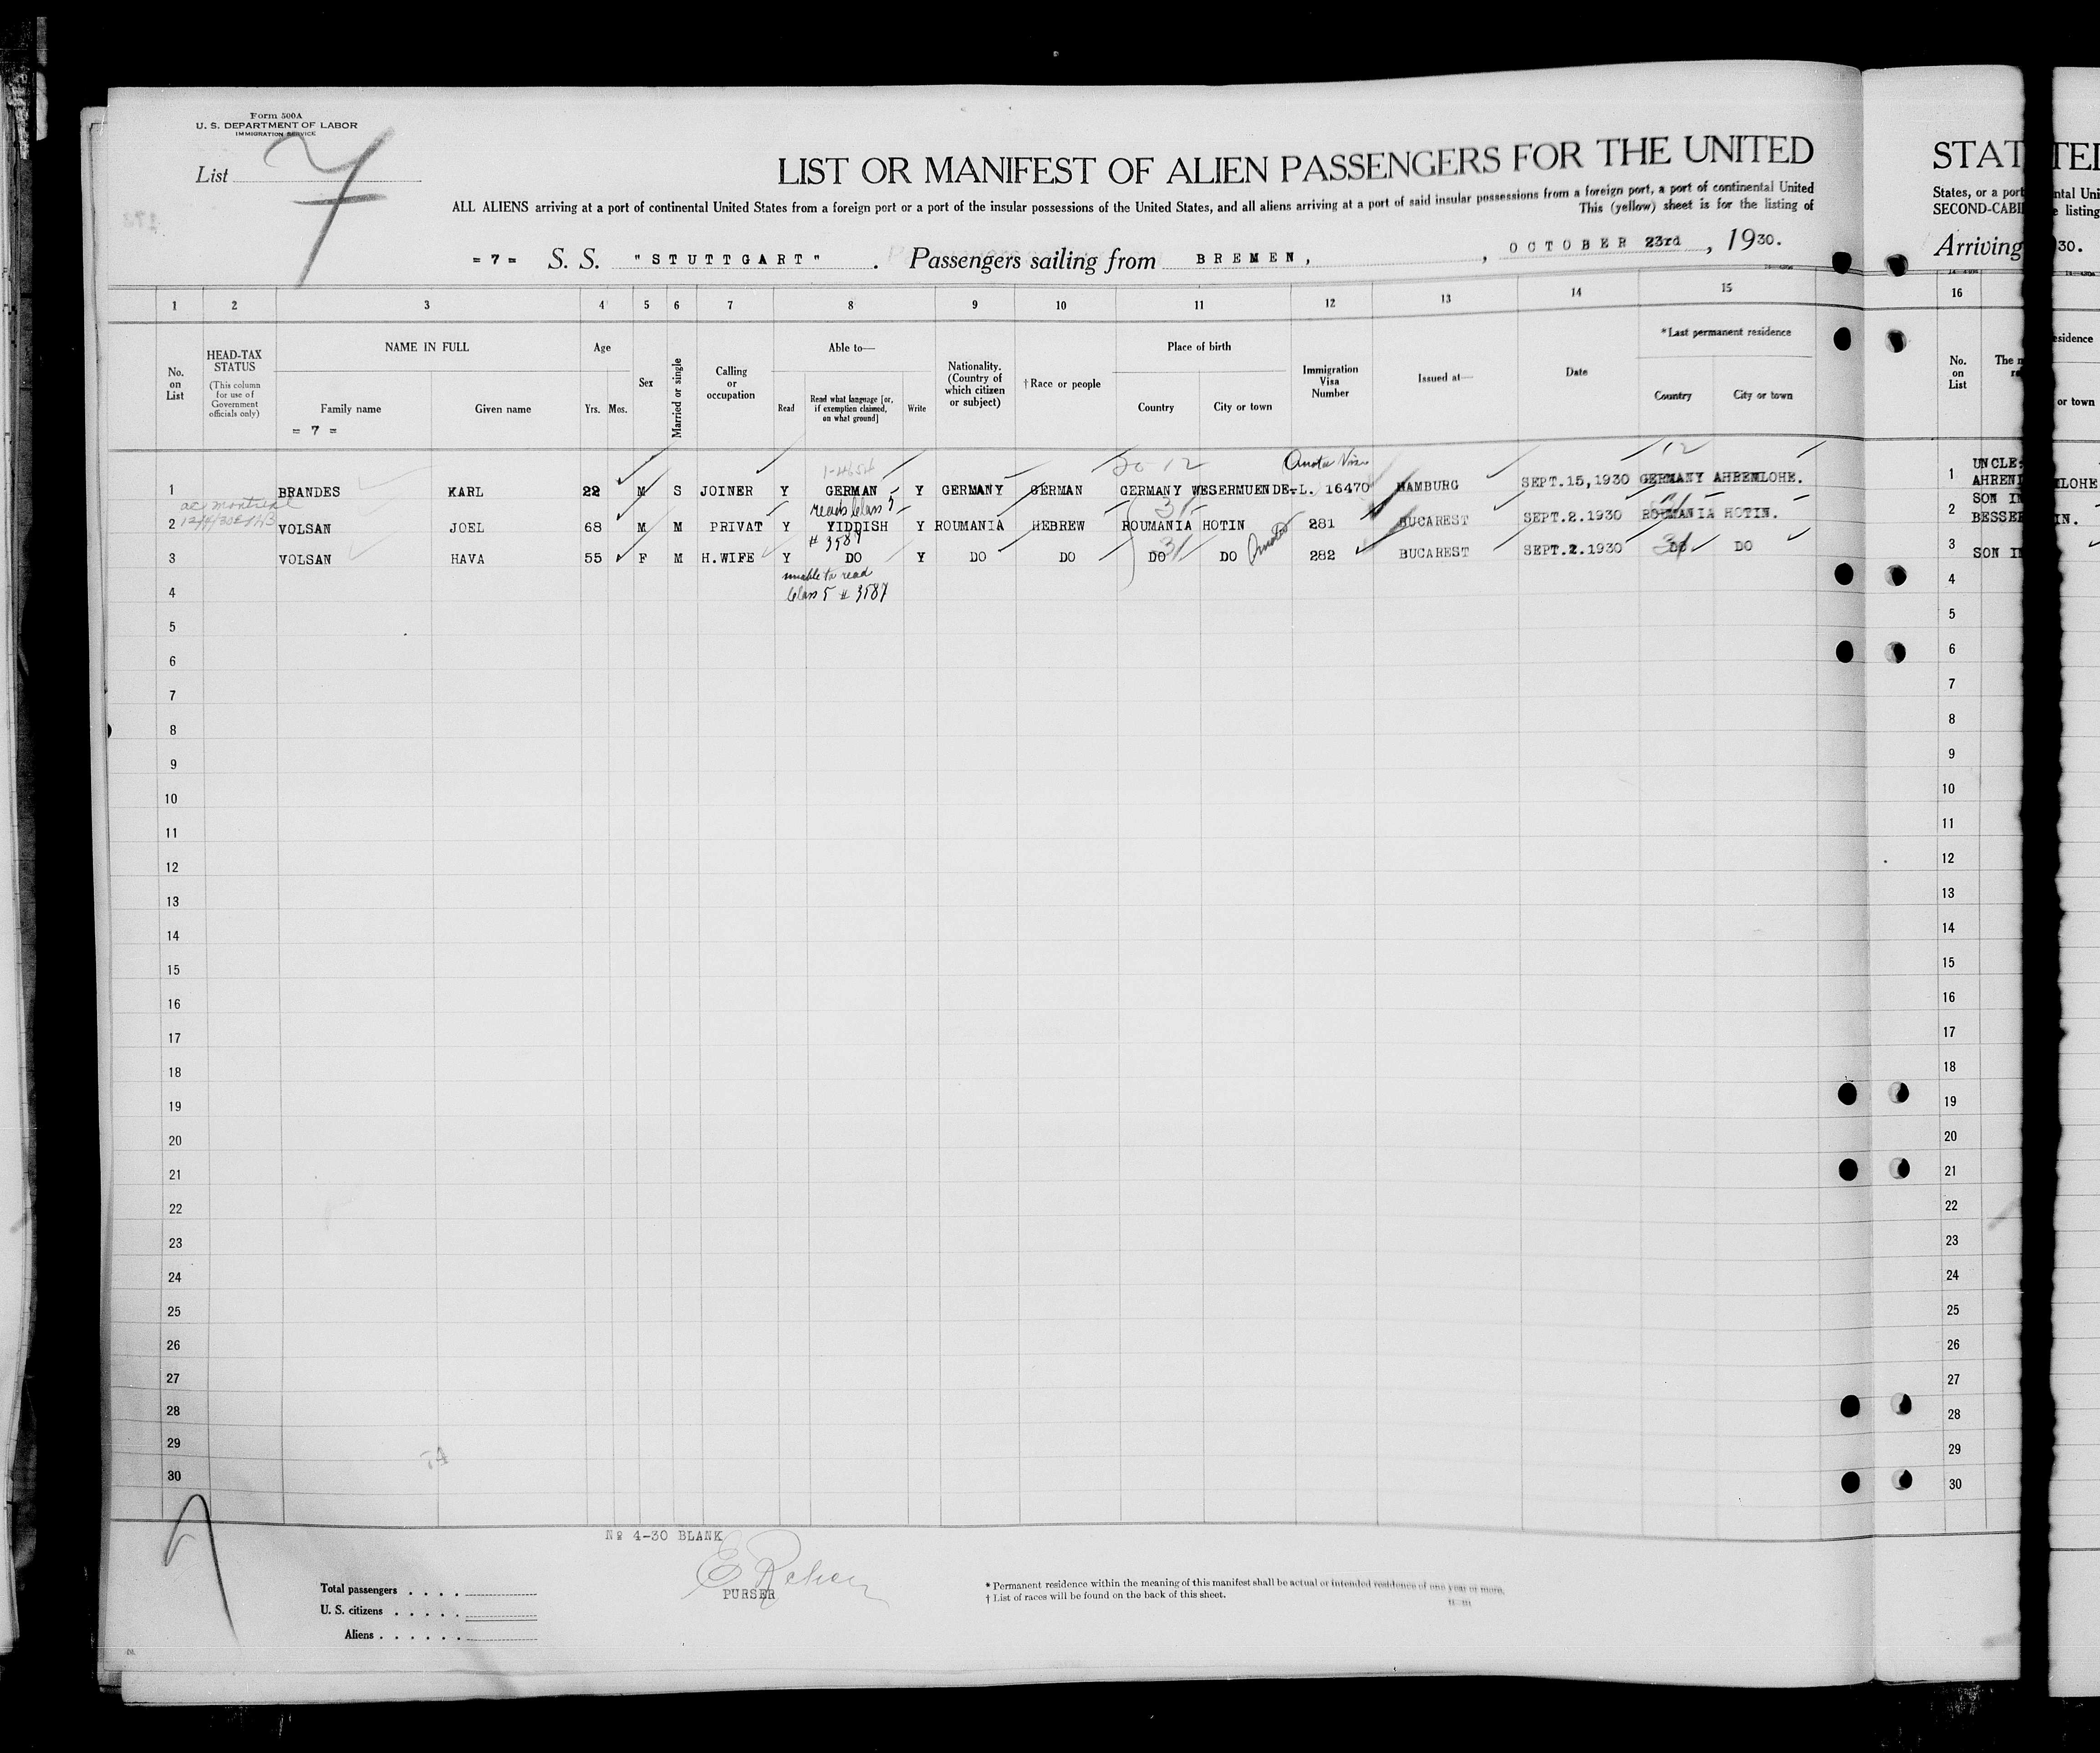 Form 500A
U. S. DEPARTMENT OF LABOR
IMMIGRATION SERVICE
List 7
LIST OR MANIFEST OF ALIEN PASSENGERS FOR THE UNITED
ALL ALIENS arriving at a port of continental United States from a foreign port or a port of the insular possessions of the United States, and all aliens arriving at a port of said insular possessions from a foreign port, a port of continental United
This (yellow) sheet is for the listing of
= 7 = S. S. "STUTTGART" . Passengers sailing from BREMEN, , OCTOBER 23rd , 1930.
1 2 3 4 5 6 7 8 9 10 11 12 13 14 15
No. on List
HEAD-TAX STATUS
(This column for use of Government officials only)
NAME IN FULL
Family name
= 7 =
Given name
Age
Yrs. Mos.
Sex
Married or single
Calling or occupation
Able to—
Read
Read what language [or, if exemption claimed, on what ground]
Write
Nationality. (Country of which citizen or subject)
†Race or people
Place of birth
Country
City or town
Immigration Visa Number
Issued at—
Date
*Last permanent residence
Country
City or town
20 12 Quota Visa 12
1 BRANDES KARL 22 M S JOINER Y GERMAN Y GERMANY GERMAN GERMANY WESERMUENDE-L. 16470 HAMBURG SEPT.15,1930 GERMANY AHRENLOHE.
reads Class 5 31
2 VOLSAN JOEL 68 M M PRIVAT Y YIDDISH Y ROUMANIA HEBREW ROUMANIA HOTIN 281 BUCAREST SEPT.2.1930 ROUMANIA HOTIN.
# 3587
3 VOLSAN HAVA 55 F M H.WIFE Y DO Y DO DO DO 31 DO Quota 282 BUCAREST SEPT.2.1930 DO 31 DO
unable to read
4 Class 5 # 3587
5
6
7
8
9
10
11
12
13
14
15
16
17
18
19
20
21
22
23
24
25
26
27
28
29
30
No 4-30 BLANK
PURSER
Total passengers . . . .
U. S. citizens . . . . .
Aliens . . . . . .
* Permanent residence within the meaning of this manifest shall be actual or intended residence of one year or more.
† List of races will be found on the back of this sheet.
STAT
States, or a port
SECOND-CABI
Arriving
16
No. on List
The
1 UNCLE:
AHREN
2 SON IN
BESSE
3 SON IN
4
5
6
7
8
9
10
11
12
13
14
15
16
17
18
19
20
21
22
23
24
25
26
27
28
29
30
TE
ntal Uni
listing
30.
esidence
or town
LOHE
IN.